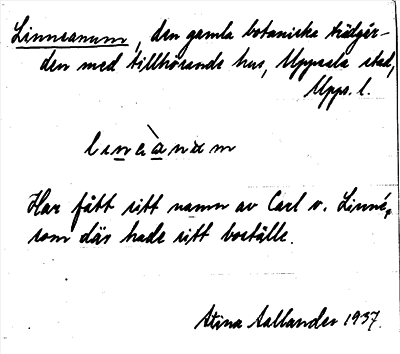 Linneanum, den gamla botaniska trädgår-
den med tillhörande hus, Uppsala stad,
Upps. l.
lineànum
Har fått sitt namn av Carl v. Linné,
som där hade sitt boställe.
Stina Aallander 1937.